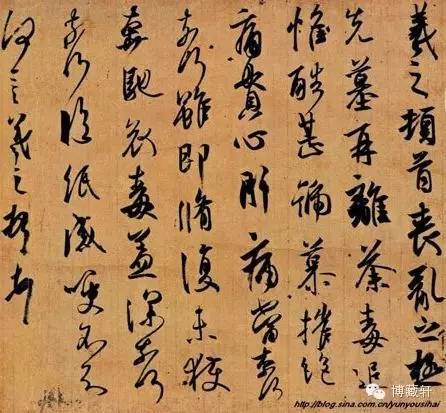 羲之頓首喪亂之極
先墓再離荼毒追
惟酷甚號慕摧絕
痛貫心肝痛當奈何
奈何雖即脩復未獲
奔馳哀毒益深奈何
奈何臨紙感哽不知
何言羲之頓首頓首
博藏轩
http://blog.sina.com.cn/yunyousihai